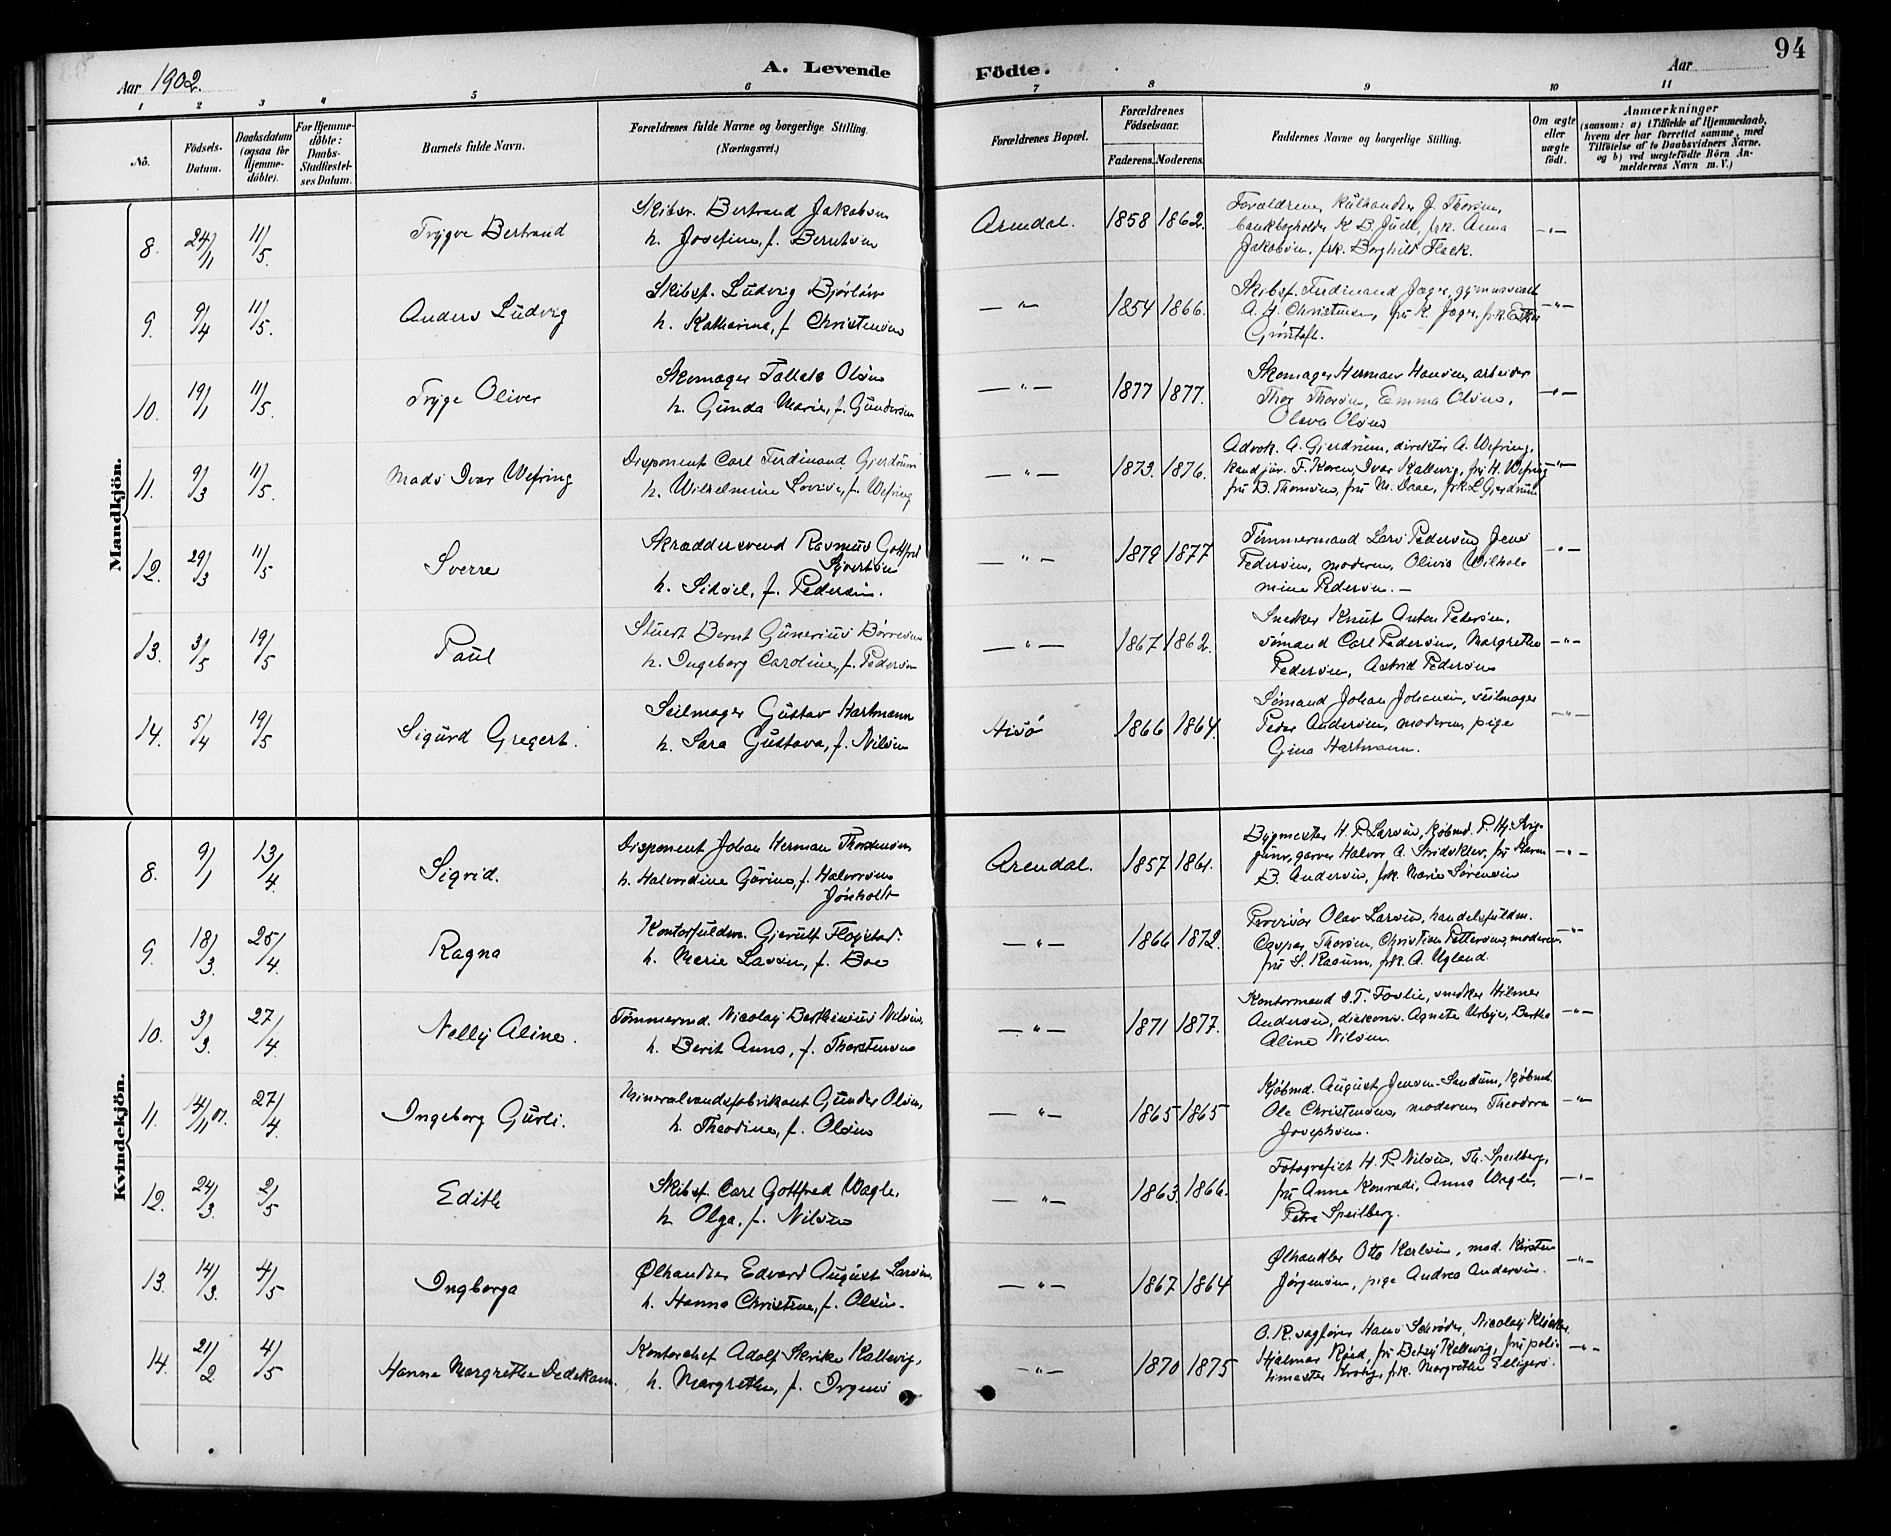 94
Aar 1902.
A. Levende Födte.
Aar
1 2 3 4 5 6 7 8 9 10 11
No.
Födsels-Datum.
Daabsdatum (ogsaa for Hjemme-döbte).
For Hjemme-döbte: Daabs-Stadfæstel-ses Datum.
Barnets fulde Navn.
Forældrenes fulde Navne og borgerlige Stilling. (Næringsvei.)
Forældrenes Bopæl.
Forældrenes Födselsaar.
Faderens. Moderens.
Faddernes Navne og borgerlige Stilling.
Om ægte eller uægte födt.
Anmærkninger
(saasom: a) i Tilfælde af Hjemmedaab, hvem der har forrettet samme, med Tilföielse af to Daabsvidners Navne. og b) ved uægtefödte Börn An-melderens Navn m. V.)
Mandkjön.
8. 24/11 11/5. Trygve Bertrand
Skibsr. Bertrand Jakobsen
h. Josefine, f. Berntsen
Arendal. 1858 1862.
Forældrene, Kulhandler J. Thorsen,
bankbogholder K. B. Juell, frk. Anna
Jakobsen, frk. Borghild Flack.
—"—
9. 9/4 11/5. Anders Ludvig
Skibsf. Ludvig Bjørløw
h. Katharina, f. Christensen
—"— 1854 1866.
Skibsf. Ferdinand Jæger, gymnasiast
A. H. Christensen, fru K. Jæger, frk. Esther
—"—
10. 19/1 11/5. Tryge Oliver
Skomager Tallak Olsen
h. Gunda Marie, f. Gundersen
—"— 1877 1877.
Skomager Herman Hansen, arbeider
Thor Thorsen, Emma Olsen,
Olava Olsen
—"—
11. 9/3 11/5. Mads Ivar Wefring
Disponent Carl Ferdinand Gjerdrum
h. Wilhelmine Lovise, f. Wefring
—"— 1873. 1876.
Advok. A. Gjerdrum, direktør A. Wefring,
kand. jur. F. Koren, Ivar Kallevig, fru H. Wefring
fru B. Thomsen, fru M. Daae, frk. L. Gjerdrum
—"—
12. 29/3 11/5 Sverre
Skræddersvend Rasmus Gottfred
Sivertsen
h. Sidsel, f. Pedersen.
—"— 1879 1877
Tømmermand Lars Pedersen, Jens
Pedersen, moderen, Olivia Wilhel-
mine Pedersen. —
—"—
13. 3/5 19/5 Paul
Stuert Bernt Gunerius Børresen
h. Ingeborg Caroline, f. Pedersen
—"— 1867 1862.
Snedker Knut Anton Pedersen,
sømand Carl Pedersen, Margrethe
Pedersen, Astrid Pedersen
—"—
14. 5/4 19/5 Sigurd Gregert.
Seilmager Gustav Hartmann
h. Sara Gustava, f. Nilsen
Hisø 1866 1864.
Sømand Johan Johansen, seilmager
Peder Andersen, moderen, pige
Gina Hartmann.
—"—
Kvindekjön.
8. 9/1 13/4 Sigrid.
Disponent Johan Herman Thorstensen
h. Halvordine Gurine, f. Halvorsen
Jønholt
Arendal. 1857 1861.
Bygmester H. P. Larsen, kjøbmd. P. Hj.
garver Halvor A. Stridsklev, fru Karen
B. Andersen, frk. Marie Sørensen
—"—
9. 18/3. 25/4. Ragna
Kontorfuldm. Gjerulf Fløystad.
h. Marie Lavine, f. Boe
—"— 1866 1872.
Provisor Olav Larsen, handelsfuldm.
Caspar Thorsen, Christian Pettersen, moderen,
fru S. Kasum, frk. A. Ugland.
—"—
10. 3/3. 27/4. Nelly Aline.
Tømmermd. Nicolay Berthinius Nilsen,
h. Berit Anna, f. Thorstensen
—"— 1871 1877.
Kontormand S. T. Foslie, snedker Hilmer
Andersen, diakoniss. Agnete Urbye, Berthe
Aline Nilsen
—"—
11. 14/11 01. 27/4. Ingeborg Gurli.
Mineralvandsfabrikant Gunder Olsen,
h. Theodine, f. Olsen
—"— 1865 1865
Kjøbmd. August Jensen-Sandum, Kjøbmd.
Ole Christensen, moderen, Theodora
Josephsen.
—"—
12. 24/3. 2/5 Edith
Skibsf. Carl Gottfred Wagle,
h. Olga, f. Nilsen
—"— 1863. 1866.
Fotografist H. P. Nilsen, Th. Speilberg,
fru Anne Konradi, Anna Wagle,
Petra Speilberg.
—"—
13. 14/3. 4/5 Ingborga
Ølhandler Edvard August Larsen,
h. Hanna Christine, f. Olsen.
—"— 1867 1864
Ølhandler Otto Karlsen, mad. Kirsten
Jørgensen, pige Andrea Andersen.
—"—
14. 21/2 4/5 Hanne Margrethe Dedekam.
Kontorchef Adolf Skrike Kallevig,
h. Margrethe, f. Irgens
—"— 1870 1875
O. R. sagfører Hans Schrøder, Nicolay Kløcker,
Hjalmar Røed, fru Betzy Kallevig, fru poli-
timester Krohg, frk. Margrethe Elligers.
—"—